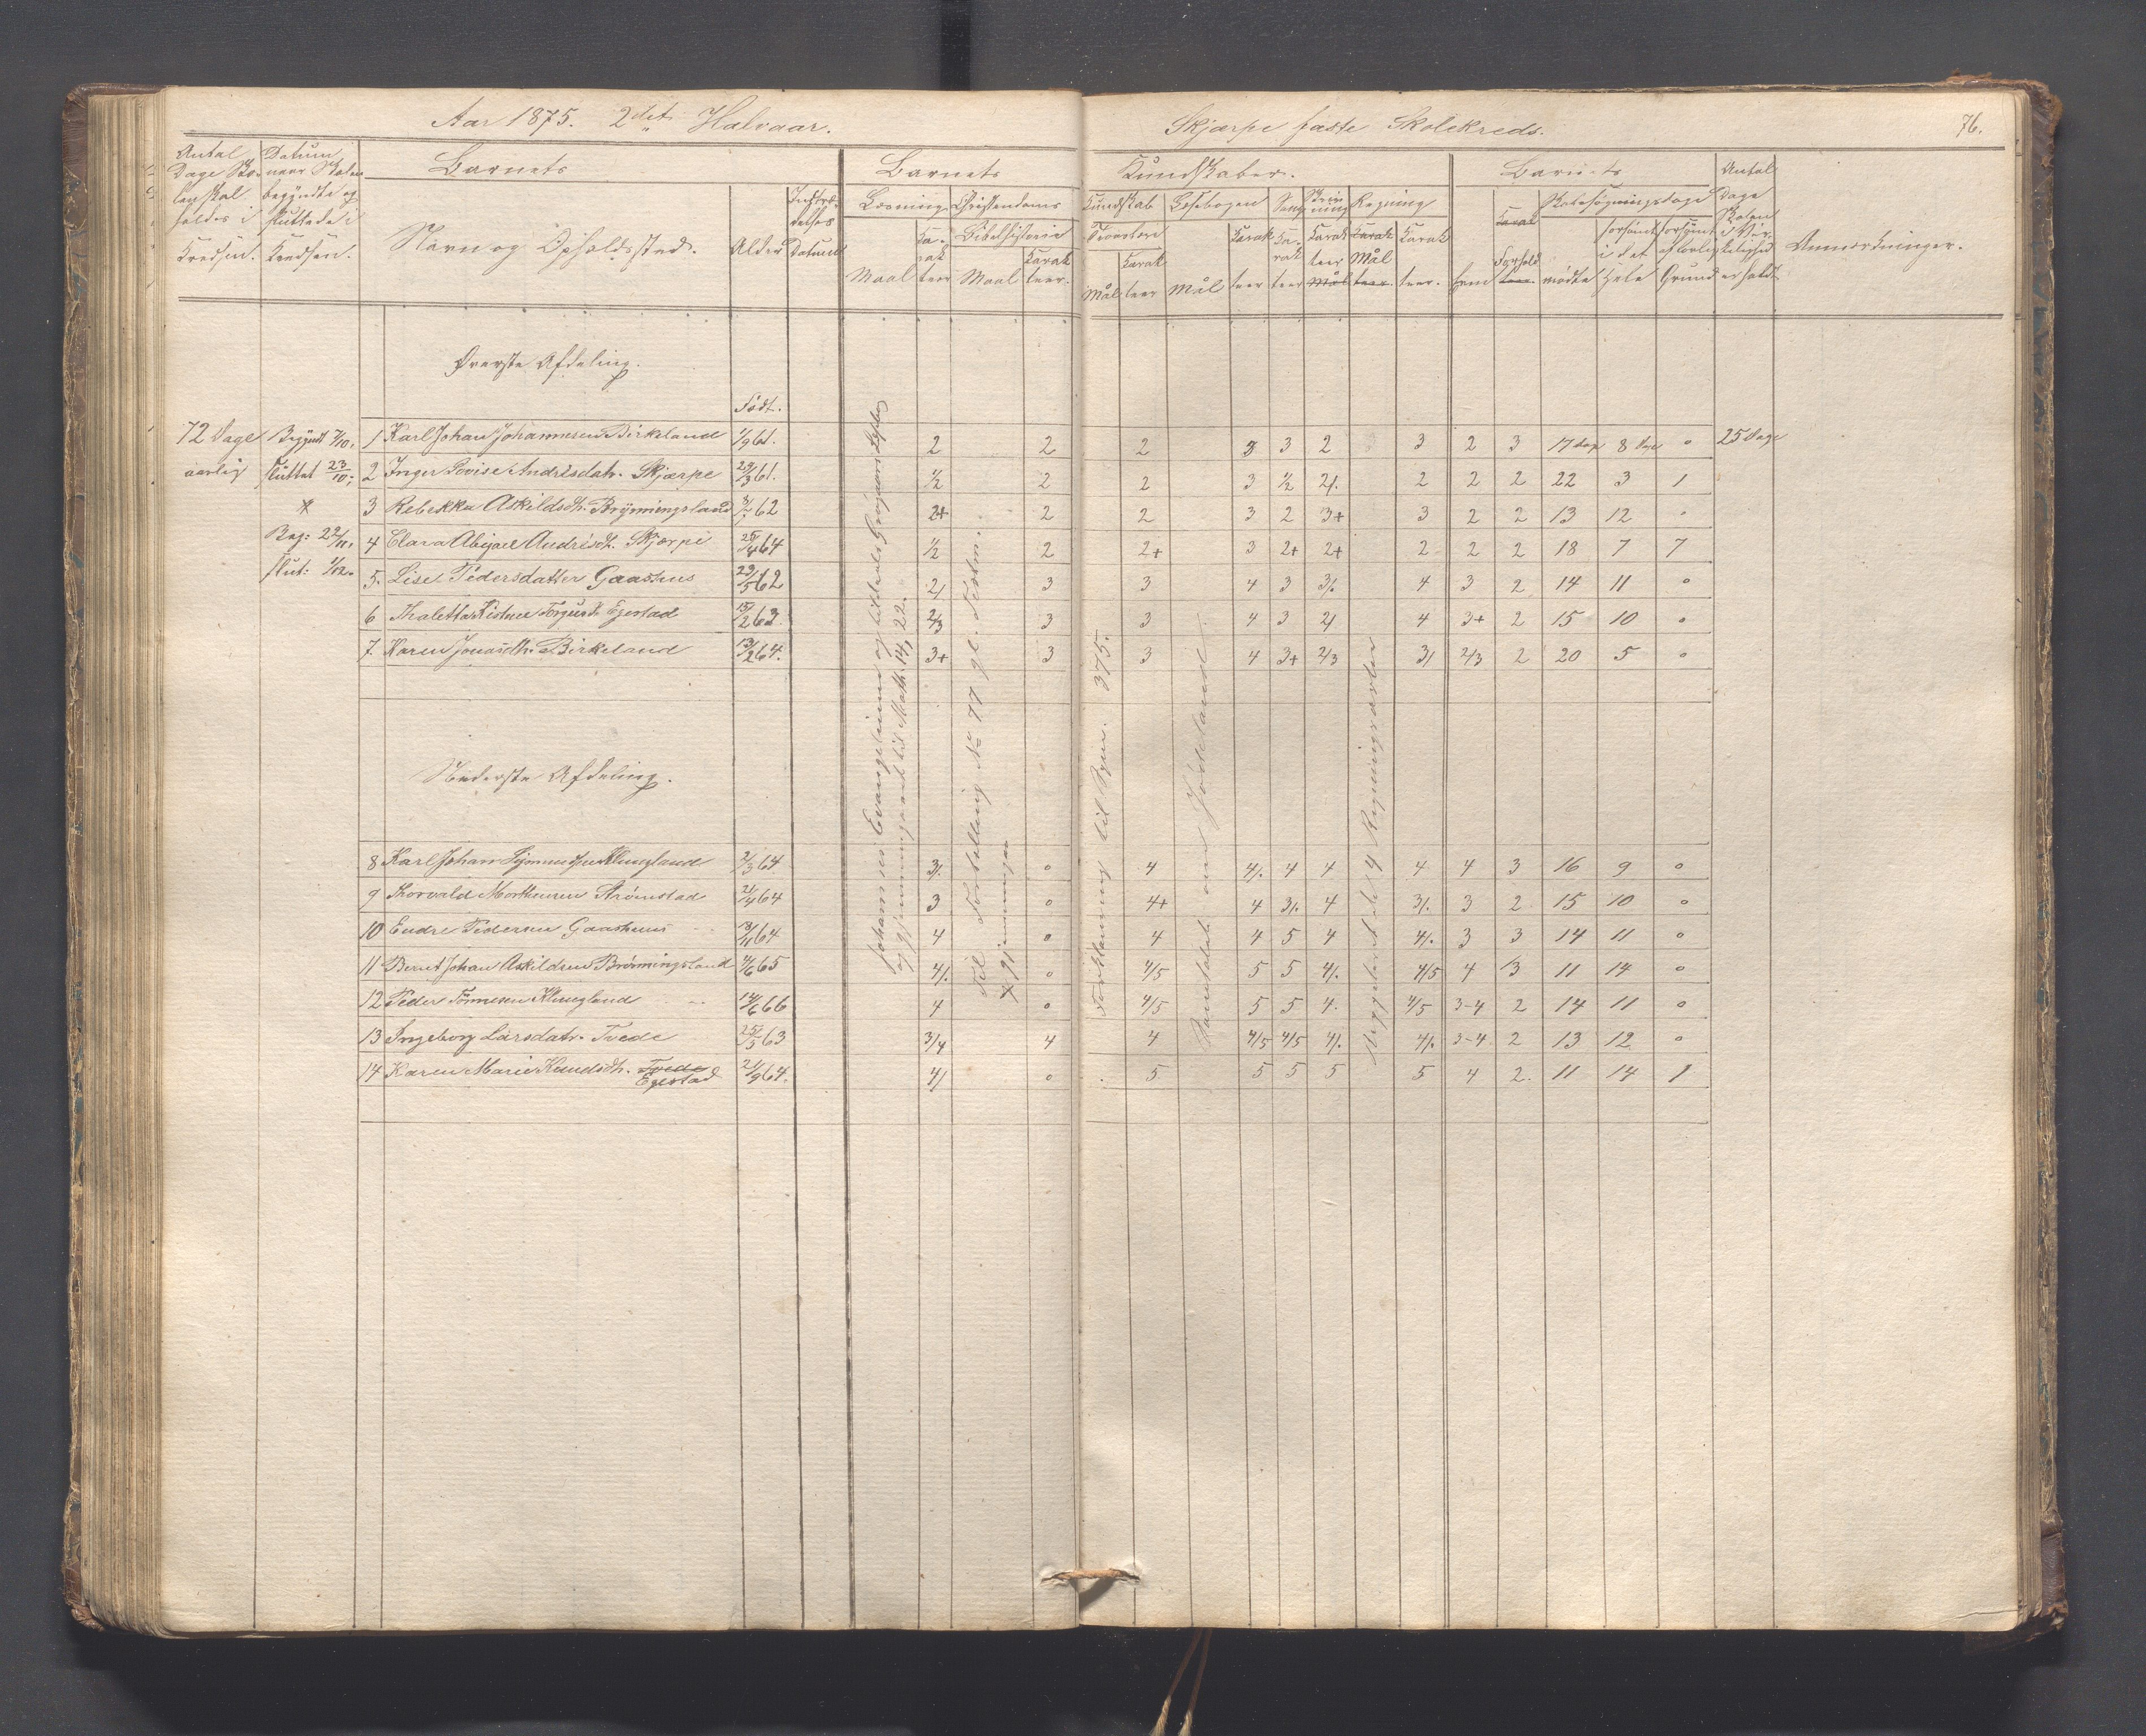 Aar 1875. 2det Halvaar.
Skjærpe faste Skolekreds.
76.
Antal Dage Skolen skal holdes i Kredsen.
Datum naar Skolen begyndte og sluttede i Kredsen.
Barnets
Navn og Opholdssted.
Alder
Indtrædelses Datum
Barnets
Læsning
Christendoms
Bibelhistorie
Maal
Karakteer
Maal
Karakteer.
Kundskaber.
Kundskab
Læsebogen
Sang
Skrivning
Regning
Troeslære
Mål
Karakteer
Mål
Karakteer
Karakteer
Karakteer
Mål
Mål
Karakteer.
Barnets
Evne
Forhold
Skolesøgningsdage
mødte
forsømt i det Hele
forsømt af lovlig Grund
Antal Dage Skolen i Virkelighed er holdt
Anmærkninger.
Øverste Afdeling.
Født.
72 Dage aarlig
Begyndt 7/10,
sluttet 23/10;
Beg: 22/11,
slut: 1/12.
1 Karl Johan Johannesen Birkeland 1/9 61. 2 2 2 3 3 2 3 2 3 17 dage 8 Dage 0 25 Dage
2 Inger Lovise Andrisdatr. Skjærpe 29/3 61. 1/2 2 2 3 1/2 2/. 2 2 2 22 3 1
3 Rebekka Askildsdh. Brynningsland 3/7 62 2+ 2 2 3 2 3+ 3 2 2 13 12 0
4 Clara Abigael Andrisdh. Skjærpe 25/4 64 1/2 2 2+ 3 2+ 2+ 2 2 2 18 7 7
5. Lise Pedersdatter Gaashus 29/5 62 2/ 3 3 4 3 3/. 4 3 2 14 11 0
6 Thalette Kistine Torgersd. Egestad 15/2 63 2/3 3 3 4 3 2/ 4 3+ 2 15 10 0
7. Karen Jonasdh. Birkeland 13/2 64. 3+ 3 3 4 3+ 2/3 3/ 2/3 2 20 5 0
Nederste Afdeling.
8 Karl Johan Klungland 3/3 64 3/. 0 4 4/. 4 4 4 4 3 16 9 0
9 Thorvald Morthensen Strømstad 21/4 64 3 0 4+ 4 3/. 4 3/. 3 2 15 10 0
10 Endre Pedersen Gaashuus 13/11 64 4 0 4 4 5 4 4/. 3 3 14 11 0
11 Bernt Johan Askildsen Brønningsland 4/6 65 4/. 0 4/5 5 5 4/. 4/5 4 3 11 14 0
12 Peder Tønnesen Klungland 14/6 66 4 0 4/5 5 5 4. 4/5 3-4 2 14 11 0
13 Ingeborg Larsdatr. Tvede 25/5 63 3/4 4 4 4/5 4/5 4/. 4/. 3-4 2 13 12 0
14 Karen Marie Knudsdh. Tvede Egestad 21/9 64. 4/ 0 5 5 5 5 5 4 2. 11 14 1
Johannes Evangelium og
igjennemgaaet til Math. 14, 22.
Til Fortælling No 77 gl. Testm.
Forklaring til Spm. 375.
4 Regningsarter